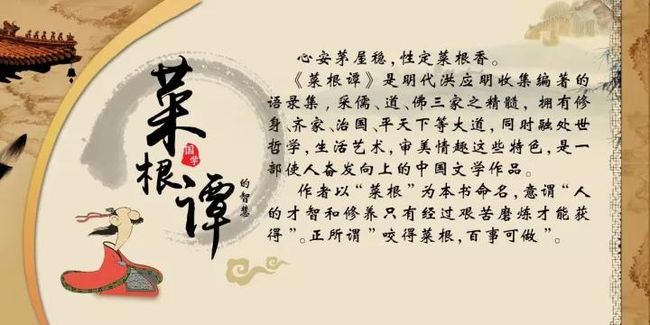 菜根谭
国学
的智慧
心安茅屋稳，性定菜根香。
《菜根谭》是明代洪应明收集编著的
语录集，采儒、道、佛三家之精髓，拥有修
身、齐家、治国、平天下等大道，同时融处世
哲学，生活艺术，审美情趣这些特色，是一
部使人奋发向上的中国文学作品。
作者以“菜根”为本书命名，意谓“人
的才智和修养只有经过艰苦磨炼才能获
得”。正所谓”咬得菜根，百事可做”。